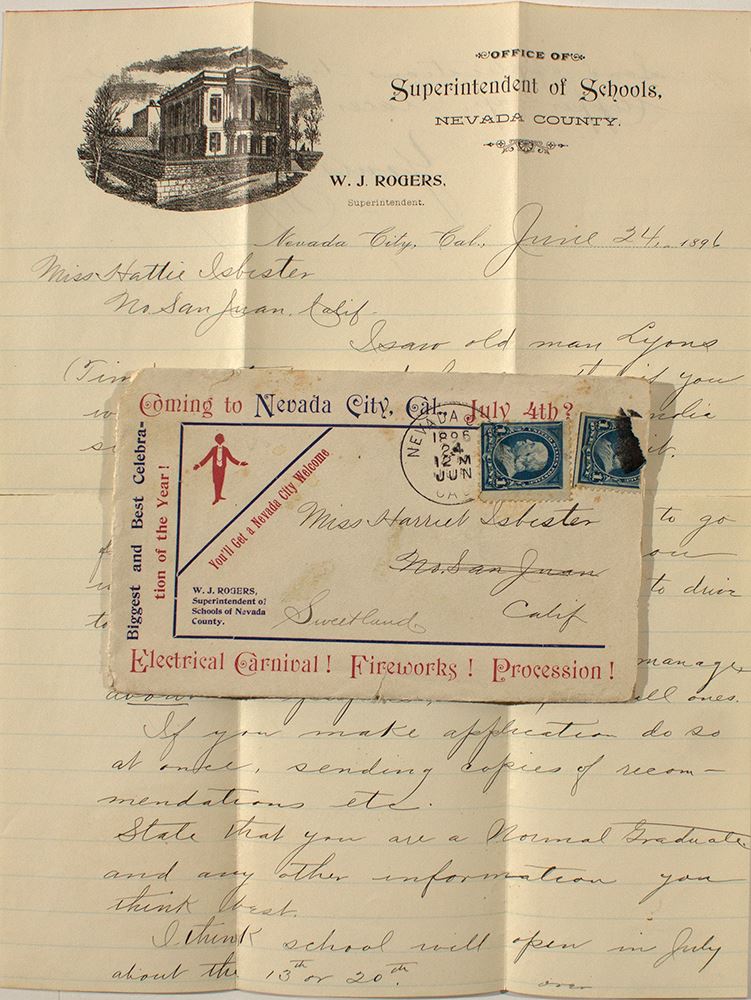 OFFICE OF
Superintendent of Schools,
NEVADA COUNTY.
W. J. ROGERS,
Superintendent.
Nevada City, Cal., June 24, 1896
Miss Hattie Isbister
No. San Juan, Calif.
I saw old man Lyons
(Tim
if you
to go
to drive
to
manage
about
all ones.
If you make application do so
at once, sending copies of recom-
mendations etc.
State that you are a Normal Graduate
and any other information you
think best.
I think school will open in July
about the 13th or 20th.
over
Coming to Nevada City, Cal., July 4th?
Biggest and Best Celebra-
tion of the Year!
You'll Get a Nevada City Welcome
W. J. ROGERS,
Superintendent of
Schools of Nevada
County.
NEVADA
1896
24
12 M
JUN
CAL
Miss Harriet Isbister
No. San Juan
Calif
Sweetland
Electrical Carnival! Fireworks! Procession!